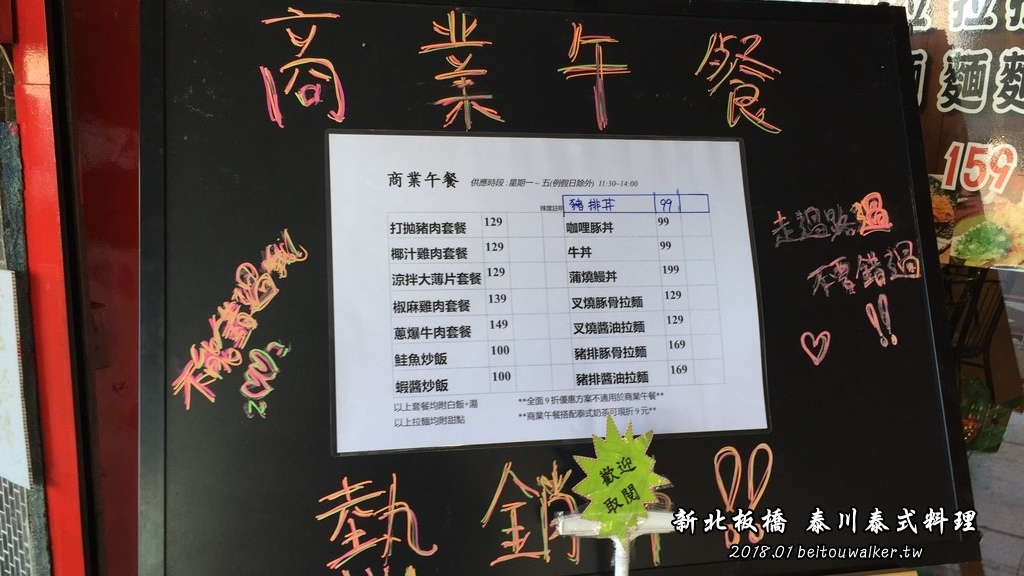 商業午餐
商業午餐 供應時段:星期一~五(例假日除外) 11:30~14:00
豬排丼 99
打拋豬肉套餐 129 咖哩豚丼 99
椰汁雞肉套餐 129 牛丼 99
涼拌大薄片套餐 129 蒲燒鰻丼 199
椒麻雞肉套餐 139 叉燒豚骨拉麵 129
蔥爆牛肉套餐 149 叉燒醬油拉麵 129
鮭魚炒飯 100 豬排豚骨拉麵 169
蝦醬炒飯 100 豬排醬油拉麵 169
以上套餐均附白飯+湯 **全面9折優惠方案不適用於商業午餐**
以上拉麵均附甜點 **商業午餐搭配泰式奶茶可現折9元**
不能錯過
走過路過
不要錯過
!!
熱銷中!!
歡迎
取閱
麵
159
新北板橋 泰川泰式料理
2018.01 beitouwalker.tw